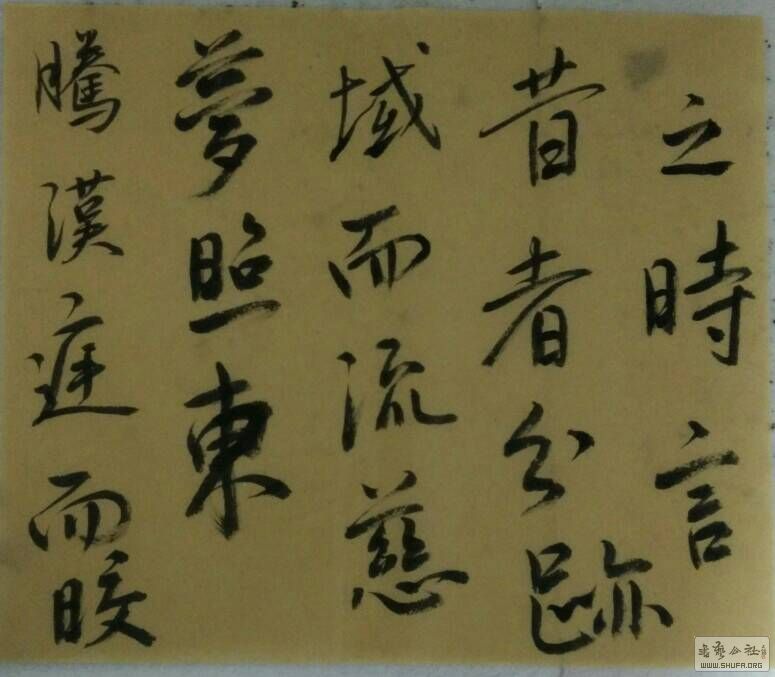 之時言
昔者分跡
域而流慈
夢照東
騰漢庭而皎
書藝公社
WWW.SHUFA.ORG